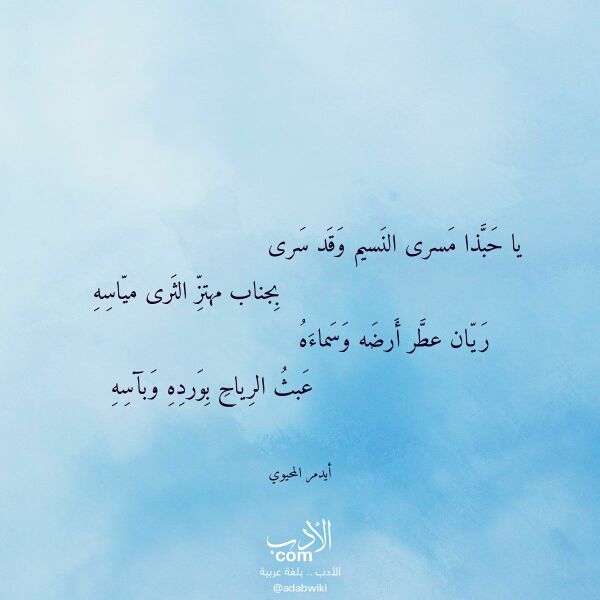 يا حَبَّذا مَسرى النَسيم وَقَد سَرى
بِجناب مهتزِّ الثَرى ميّاسِهِ
رَيّان عطَّر أَرضَه وَسَماءَهُ
عَبثُ الرِياحِ بِوَردِهِ وَبآسِهِ
أيدمر المحيوي
الأدب
com
الأدب .. بلغة عربية
@adabwiki